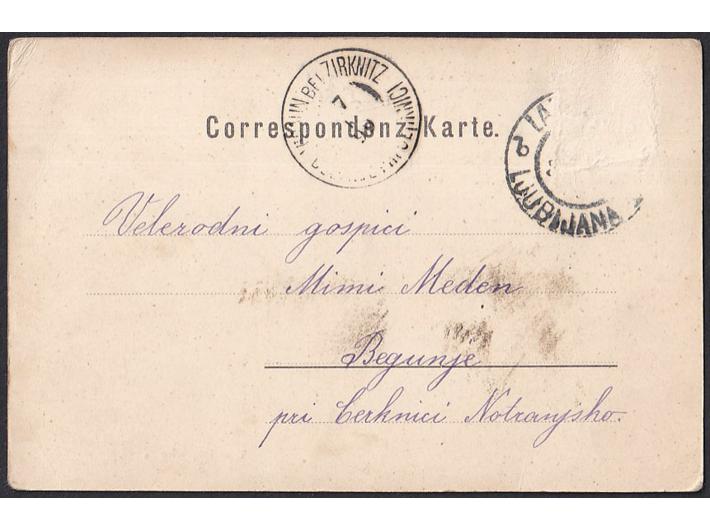 Correspondenz-Karte.
LJUBLJANA
Velerodni gospici
Mimi Meden
Begunje
pri Cerknici Notranjsko.